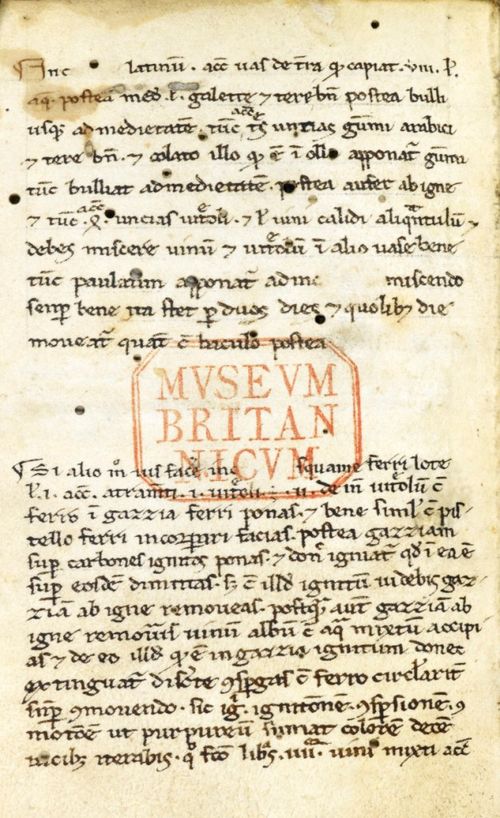 Inc latinū. acc̄ uas de t̄ra qd capiat .viii. ł.
aq̄. postea med. ł. galette ⁊ tere bn̄ postea bulli
usq; ad medietatē. tūc acc̄ uncias gūmi arabici
⁊ tere bn̄. ⁊ colato illo qd̄ ē ī olla apponat᷑ gūmi
tūc bulliat ad medietatē. postea aufer ab igne
⁊ tūc acc̄ uncias uitͦoli. ⁊ ł uini calidi aliqͣntulū ⁊
debes miscere uinū ⁊ uitͦolū ī alio uase bene
tūc paulatim apponat᷑ ad inc miscendo
senꝑ bene ita stet ꝑ duos dies ⁊ quolib; die
moueat᷑ quat᷑ cū baculo postea
MVSEVM
BRITAN
NICVM
Si alio mͦ uis facē inc squame ferri lote
ł. i. acc̄. atramti. i. uitͦeli. de in uitͦolū c̄
ferro ī gazzia ferri ponas. ⁊ bene simł c̄ pis-
tello ferri incorporari facias. postea gazziam
suꝑ carbones ignitos ponas. ⁊ donͨ igniat᷑ qd̄ ī ea ē
suꝑ eosdē dimittas. s; c̄ illd̄ ignitū uidebis gaz-
ziā ab igne remoueas. postqͣ aut̄ gazziā ab
igne remouīs uinū albū c̄ aqͣ mixtū accipi-
as ⁊ de eo illd̄ qd̄ ē in gazzia ignitum donec
extinguat᷑ discͤte ꝯsꝑgas c̄ ferro circłarit᷑
senꝑ ꝯmouendo. sic igͥ. ignitionē. ꝯsꝑsionē. ꝯ
motōem ut purpureū sumat colorē decē
uicib; iterabis. qͦ fcō libͣs .iiii. uini mixti acc̄